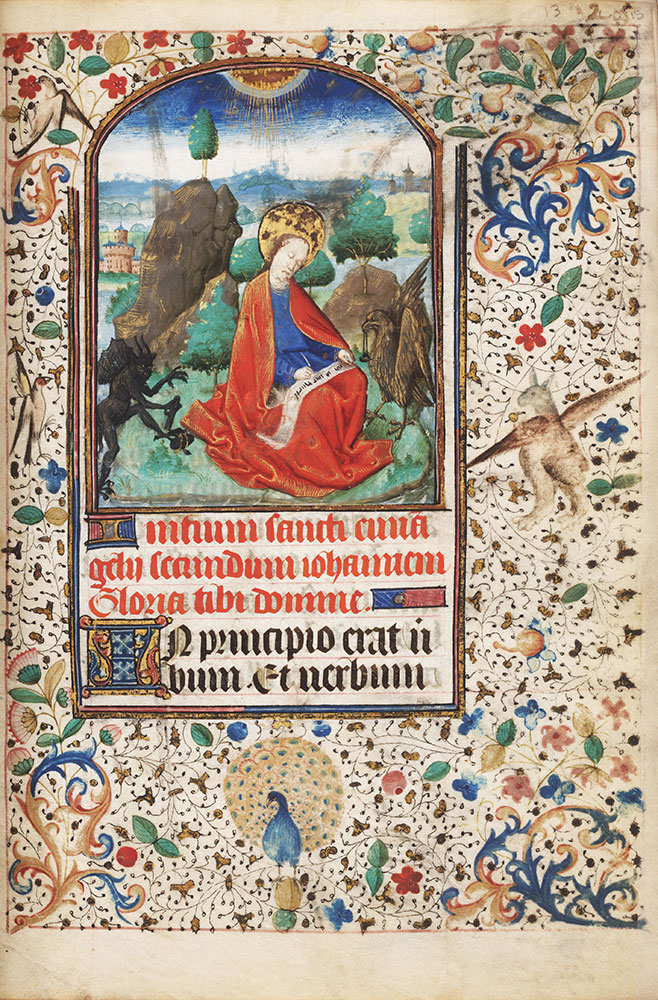 Initium sancti euuā
gelij secundum iohannem
Gloria tibi domine.
IN principio erat ū
bum Et uerbum